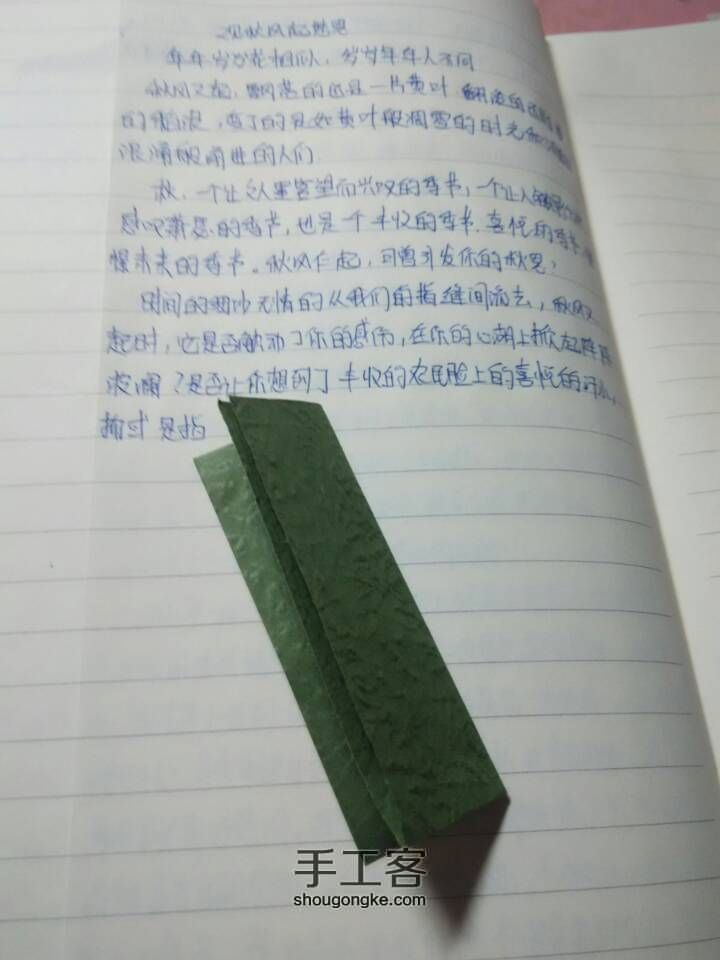 见秋风起愁思
年年岁岁花相似，岁岁年年人不同
秋风又起，飘落的还是一片黄叶
的，变了的是如黄叶般凋零的时光
浪潮般前进的人们
秋，一个让文人墨客望而兴叹的季节，一个让人
感叹萧瑟的季节，也是一个丰收的季节，喜悦的季节
憬未来的季节。秋风仁起，可曾引发你的秋思，
时间的细沙无情的从我们的指缝间流去，秋风又
起时，它是否触动了你的感伤，在你的心湖上掀起阵阵
波澜？是否让你想到了丰收的农民脸上的喜悦的
抑或是指
手工客
shougongke.com